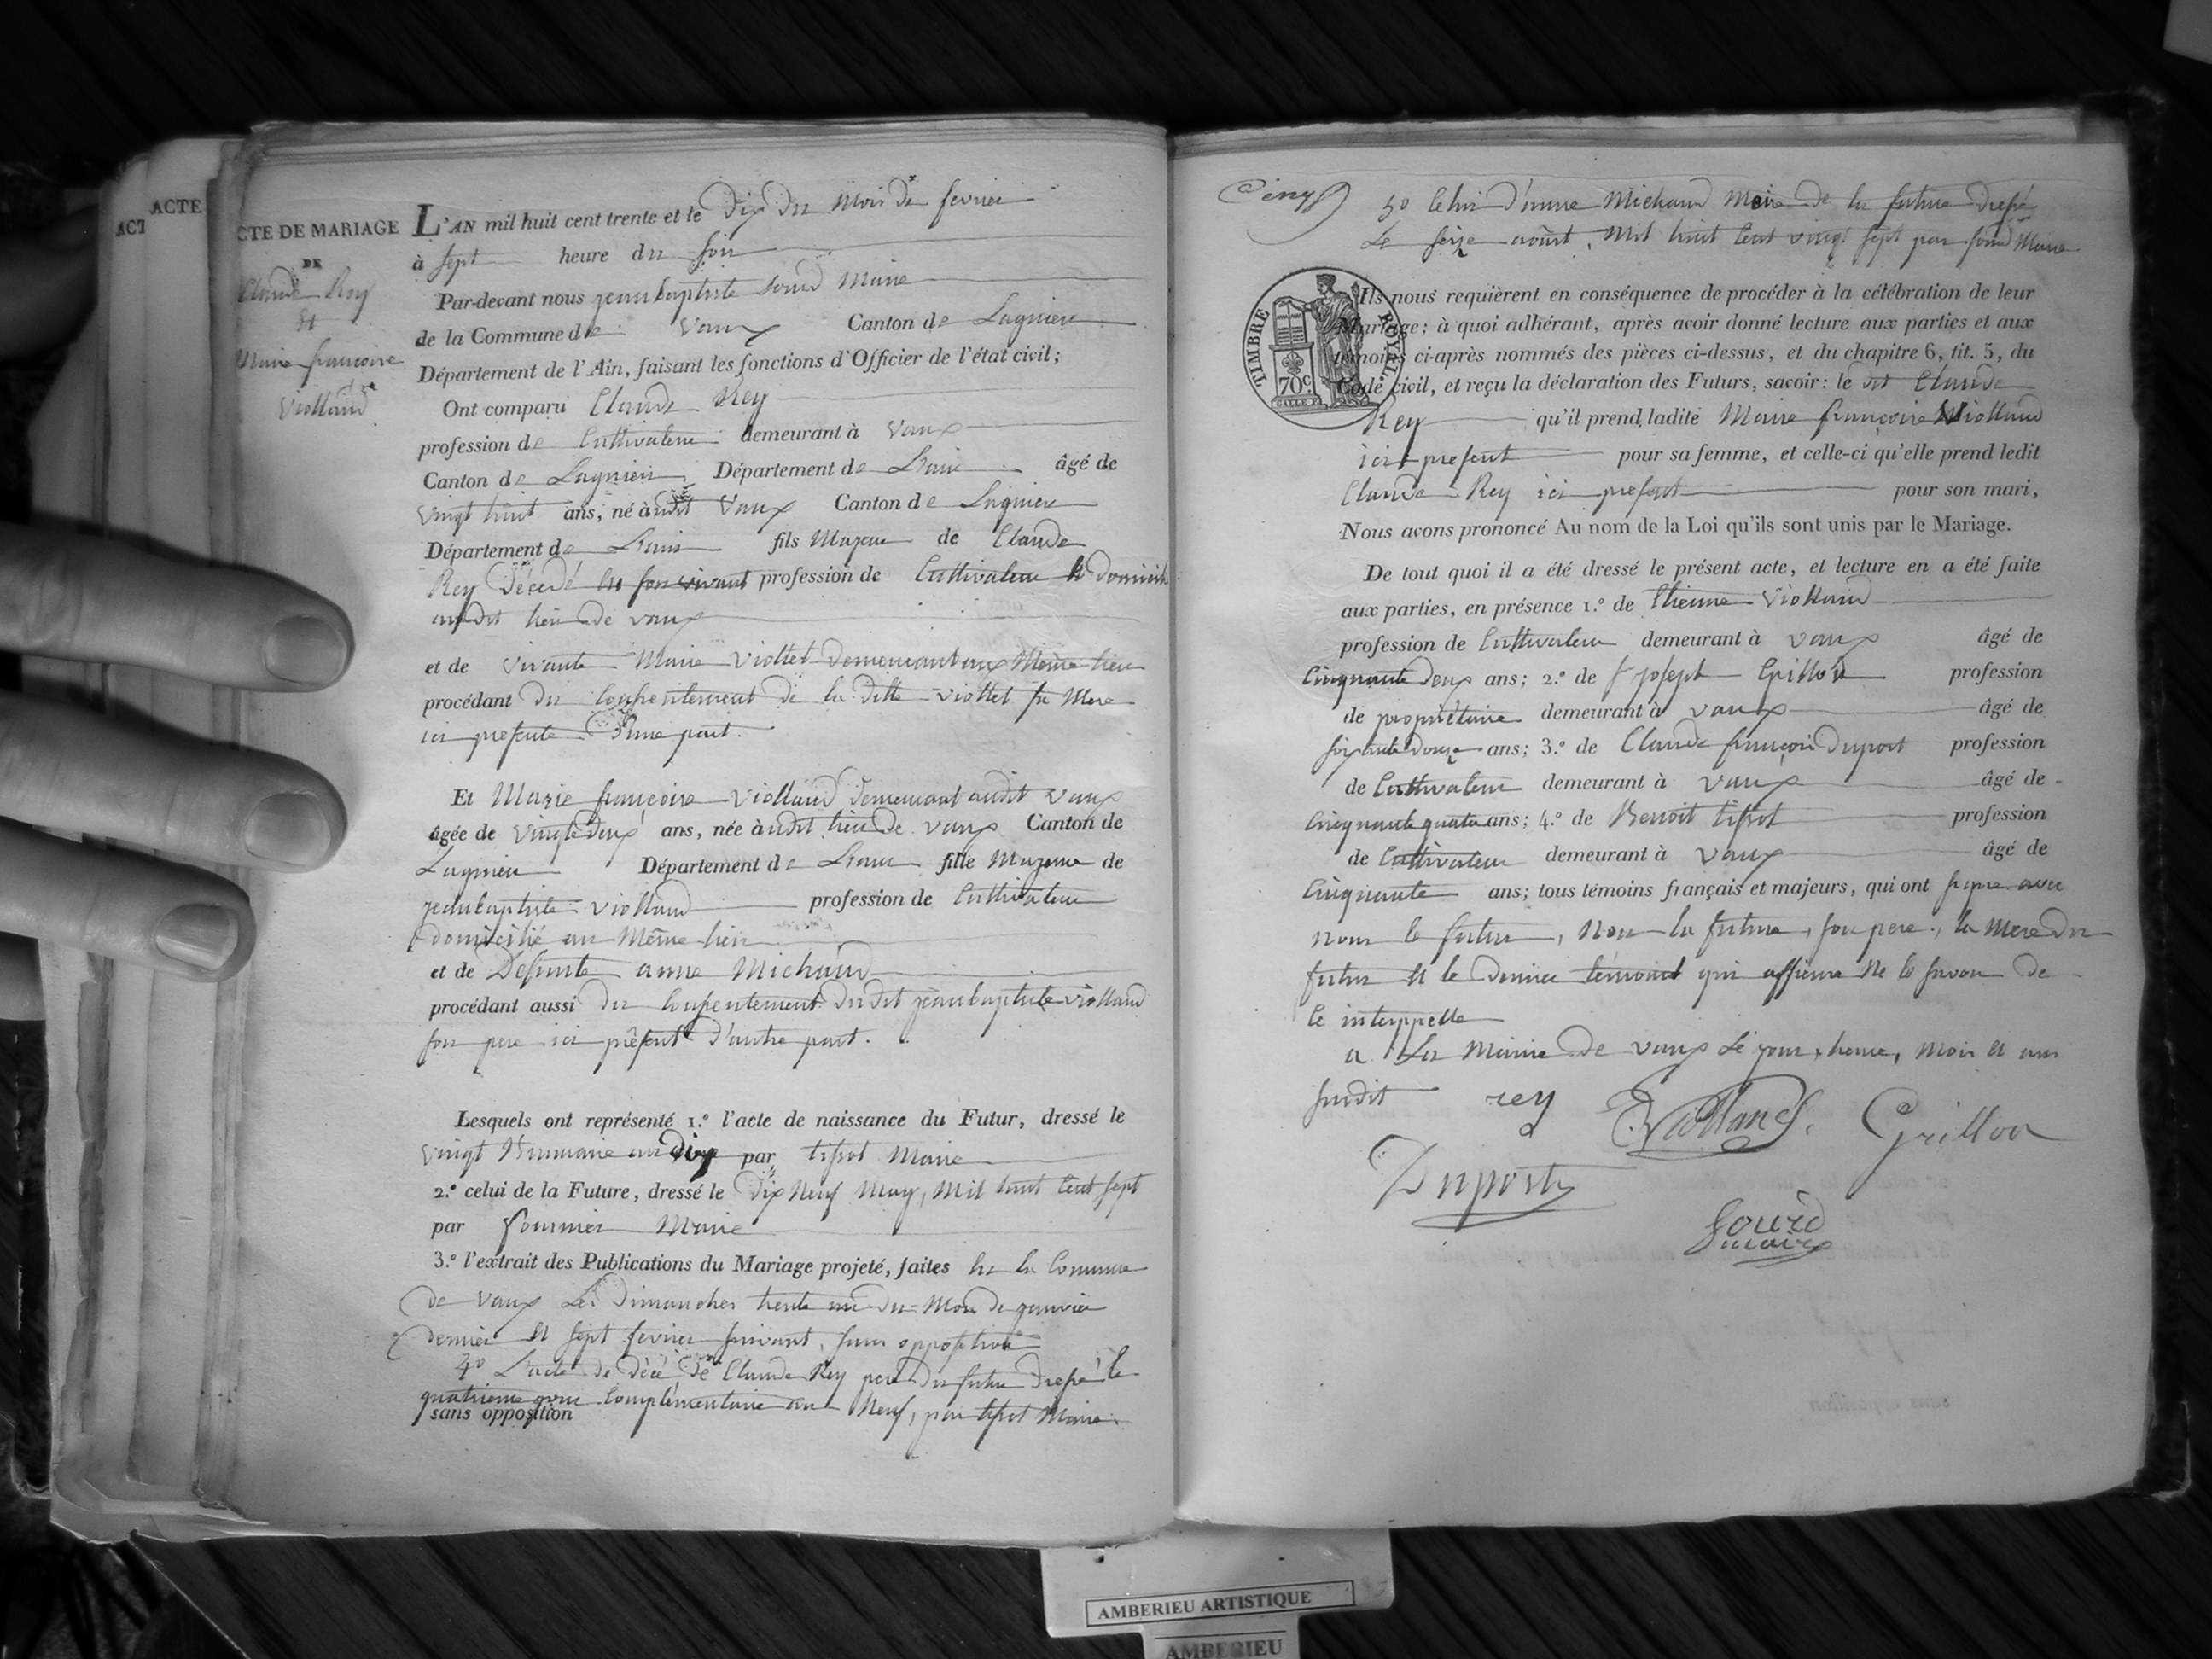 ACTE
ACT
CTE DE MARIAGE
DE
Claude Rey
et
Marie françoise
Violland
L'AN mil huit cent trente et le Dix du Mois de fevrier
à sept heure du soir
Par-devant nous jeanbaptiste sourd Maire
de la Commune de Vaux Canton de Lagnieu
Département de l'Ain, faisant les fonctions d'Officier de l'état civil;
Ont comparu Claude Rey
profession de Cultivateur demeurant à Vaux
Canton de Lagnieu Département de Lain âgé de
vingt huit ans, né audit Vaux Canton de Lagnieu
Département de Lain fils Majeur de Claude
Rey Décédé en son vivant profession de Cultivateur et domicilié
audit lieu de vaux
et de vivante Marie Viottet demeurant aux Même lieu
procédant du Consentement de la ditte viottet sa Mere
ici presente D'une part.
Et Marie françoise violland demeurant audit vaux
âgée de vingt deux ans, née audit lieu de vaux Canton de
Lagnieu Département de Lain fille Majeure de
jeanbaptiste violland profession de Cultivateur
domicilié au Même lieu
et de Defunte anne Michaud
procédant aussi du Consentement dudit jeanbaptiste violland
son pere ici présent D'autre part.
Lesquels ont représenté 1.º l'acte de naissance du Futur, dressé le
vingt Brumaire an dix par tissot Maire
2.º celui de la Future, dressé le Dix Neuf May, Mil huit Cent sept
par fournier Maire
3.º l'extrait des Publications du Mariage projeté, faites en la Commune
de Vaux Les Dimanches trente un du Mois de janvier
dernier et sept fevrier suivant, sans opposition
4º L'acte de décé de Claude Rey pere du futur Dressé le
quatrieme jour Complémentaire an Neuf, par tissot Maire.
sans opposition
5º Celui d'anne Michaud Mere de la future dressé
Le seize août, Mil huit Cent vingt sept par sourd Maire
TIMBRE ROYAL
70c
Ils nous requièrent en conséquence de procéder à la célébration de leur
Mariage; à quoi adhérant, après avoir donné lecture aux parties et aux
témoins ci-après nommés des pièces ci-dessus, et du chapitre 6, tit. 5, du
Code civil, et reçu la déclaration des Futurs, savoir: le dit Claude
Rey qu'il prend ladite Marie françoise Violland
ici present pour sa femme, et celle-ci qu'elle prend ledit
Claude Rey ici present pour son mari,
Nous avons prononcé Au nom de la Loi qu'ils sont unis par le Mariage.
De tout quoi il a été dressé le présent acte, et lecture en a été faite
aux parties, en présence 1.º de Etienne Violland
profession de Cultivateur demeurant à vaux âgé de
Cinquante deux ans; 2.º de joseph Grillon profession
de propriétaire demeurant à vaux âgé de
soixante douze ans; 3.º de Claude françois Duport profession
de Cultivateur demeurant à vaux âgé de
Cinquante quatre ans; 4.º de Benoit tissot profession
de Cultivateur demeurant à vaux âgé de
Cinquante ans; tous témoins français et majeurs, qui ont signé avec
nous le futur, Non la future, son pere, la Mere du
futur et le Dernier témoint qui affirme Ne le savoir de
ce interppellé
a La Mairie de vaux Le jour, heure, Mois et an
susdit rey Violland. Grillon
Duport
Sourd
maire
AMBERIEU ARTISTIQUE
AMBERIEU